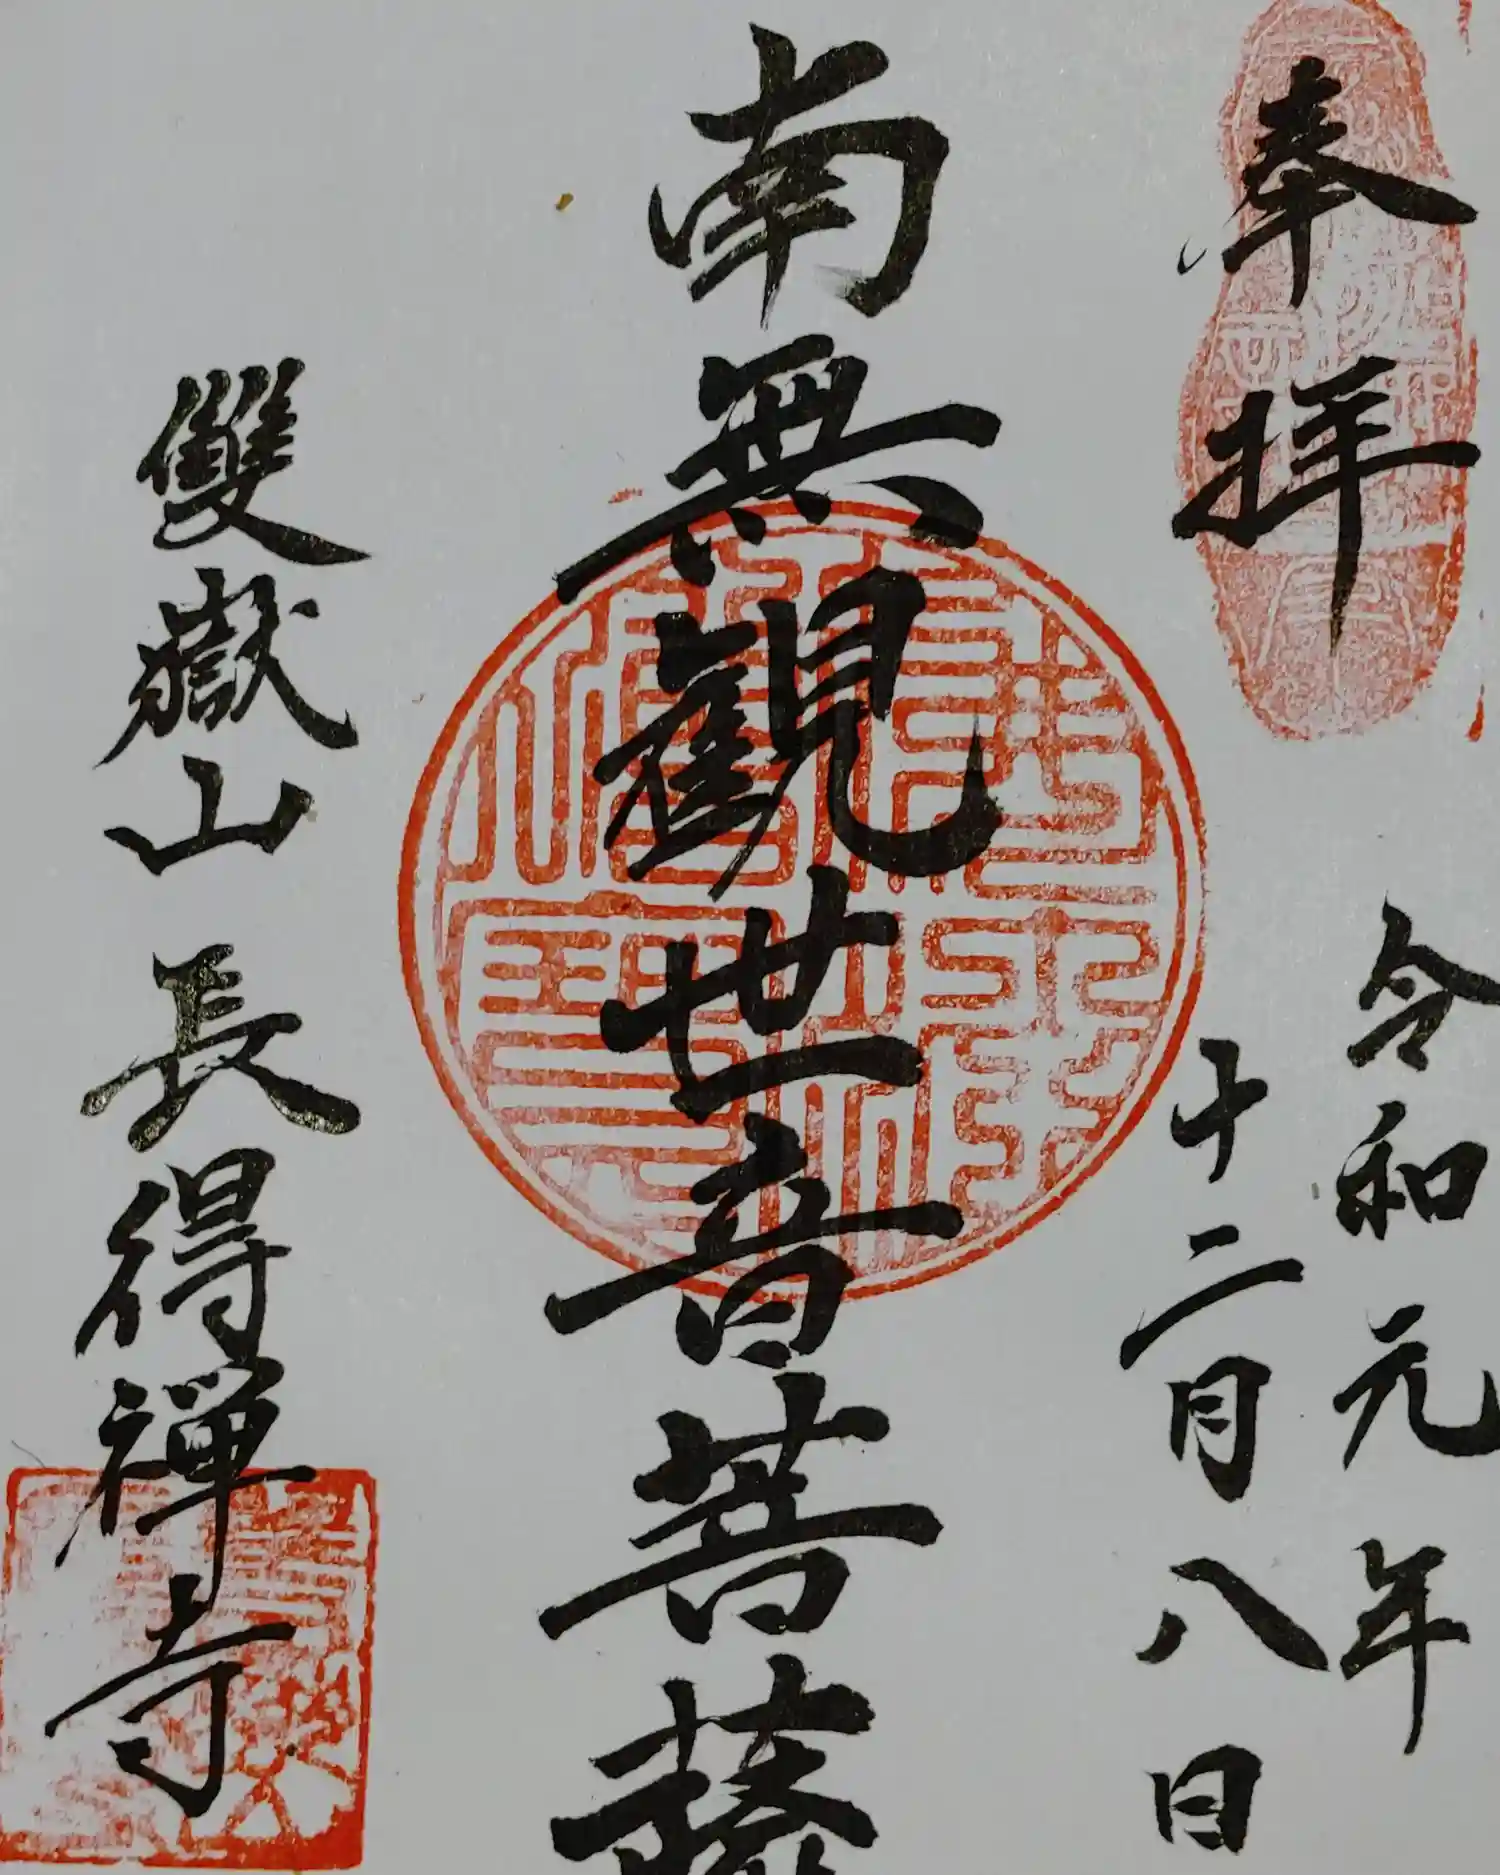 奉拝
令和元年
十二月八日
南無觀世音菩薩
雙嶽山 長得禅寺